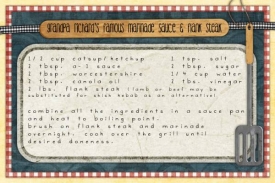 Grandpa Richard's Famous Marinade Sauce & Flank Steak
1/3 cup catsup/ketchup
1 tbsp. a-1 sauce
1 tbsp. worcestershire
1 tbsp. canola oil
2 lbs. flank steak (lamb or beef may be
substituted for shish kebab as an alternative).
1 tsp. salt
1 tbsp. sugar
1/4 cup water
1 tbs. vinegar
combine all the ingredients in a sauce pan
and heat to boiling point.
brush on flank steak and marinade
overnight. cook over the grill until
desired doneness.